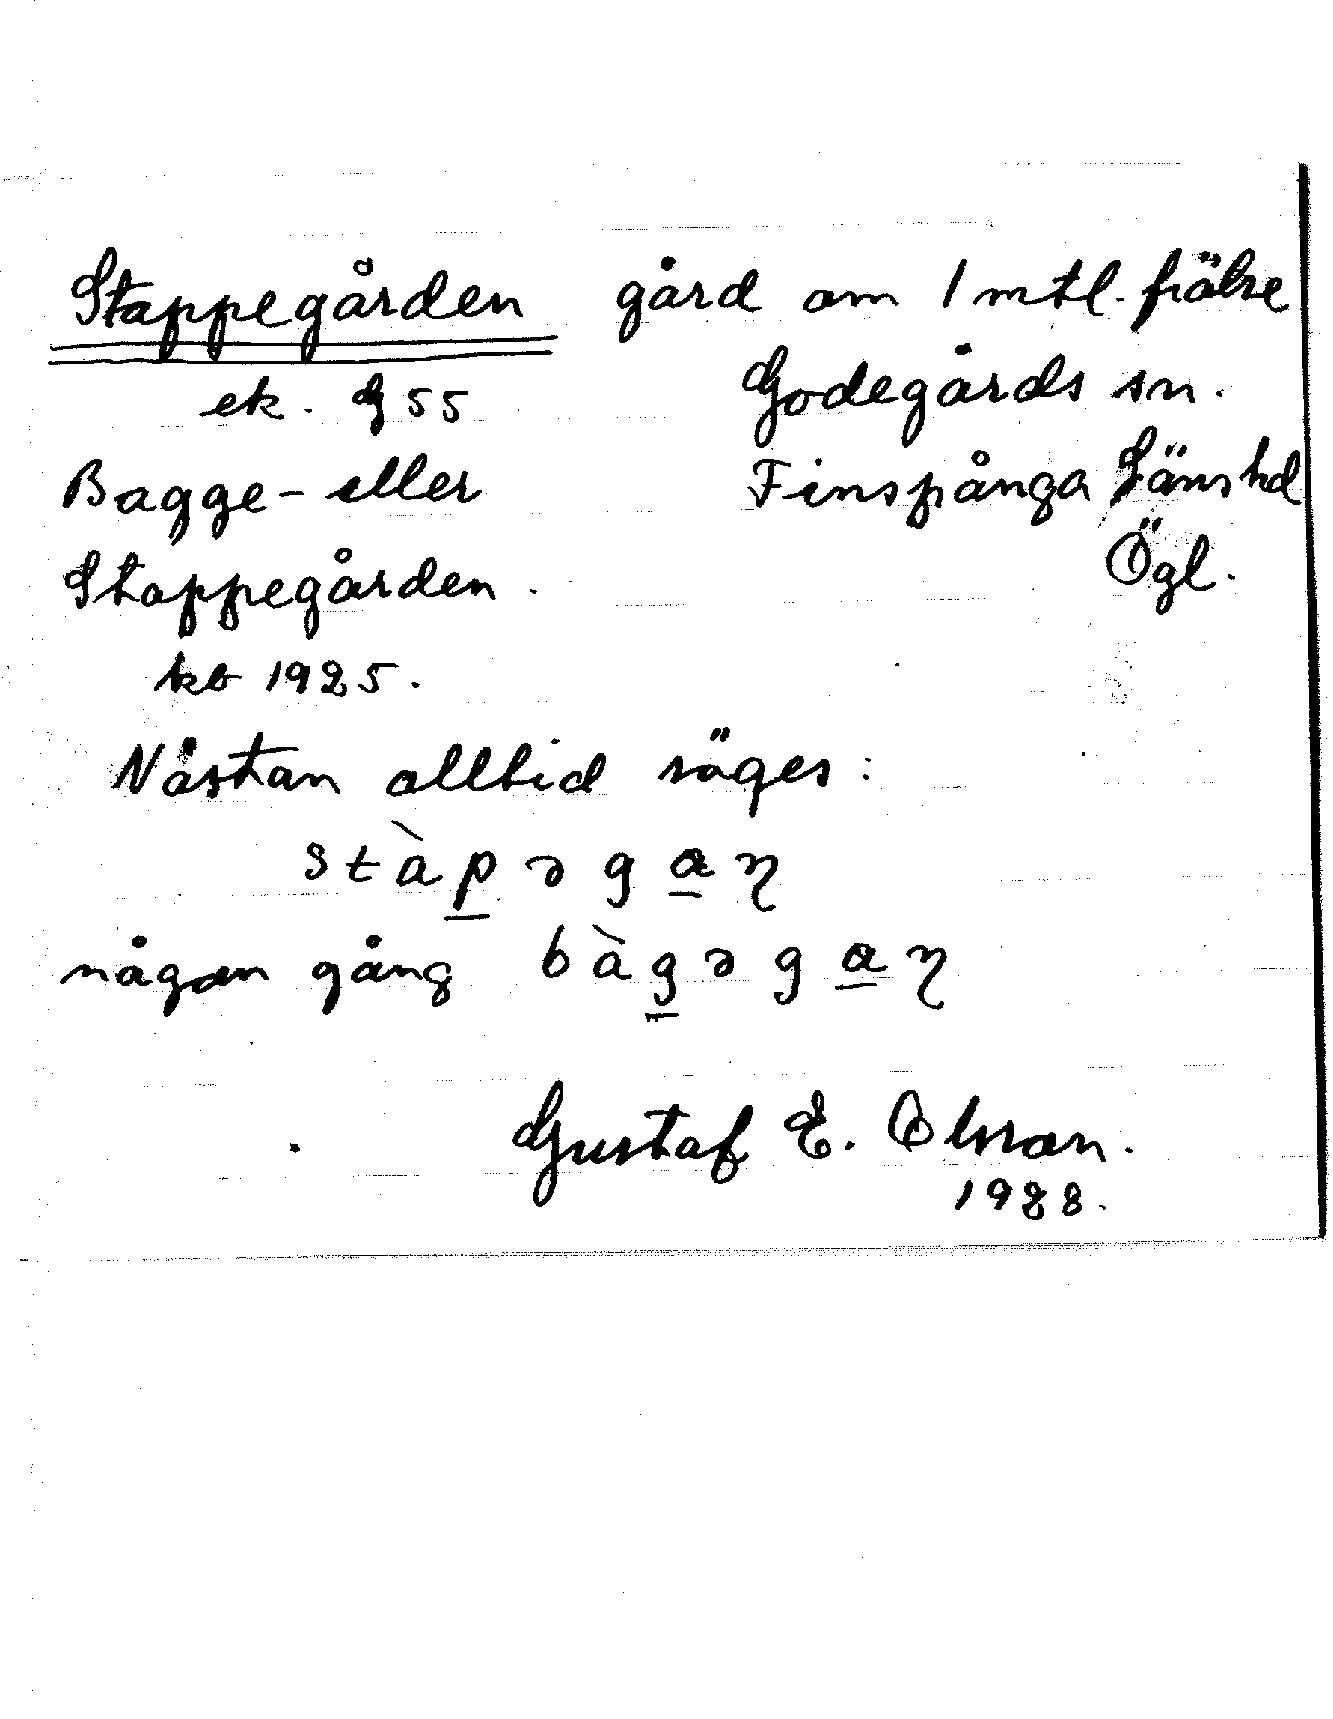 Stappegården gård om 1 mtl. frälse
ek. G 55 Godegårds sn.
Bagge- eller Finspånga Läns hd
Stappegården. Ögl.
kb 1925.
Nästan alltid säges:
stàpəgaɳ
någon gång bàgəgaɳ
Gustaf E. Olsson.
1988.